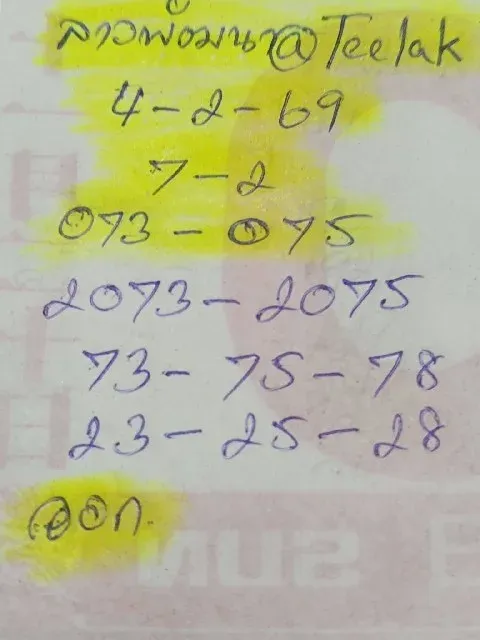 ลาวพัฒนา@Teelak
4-2-69
7-2
073-075
2073-2075
73-75-78
23-25-28
ออก.
SUN